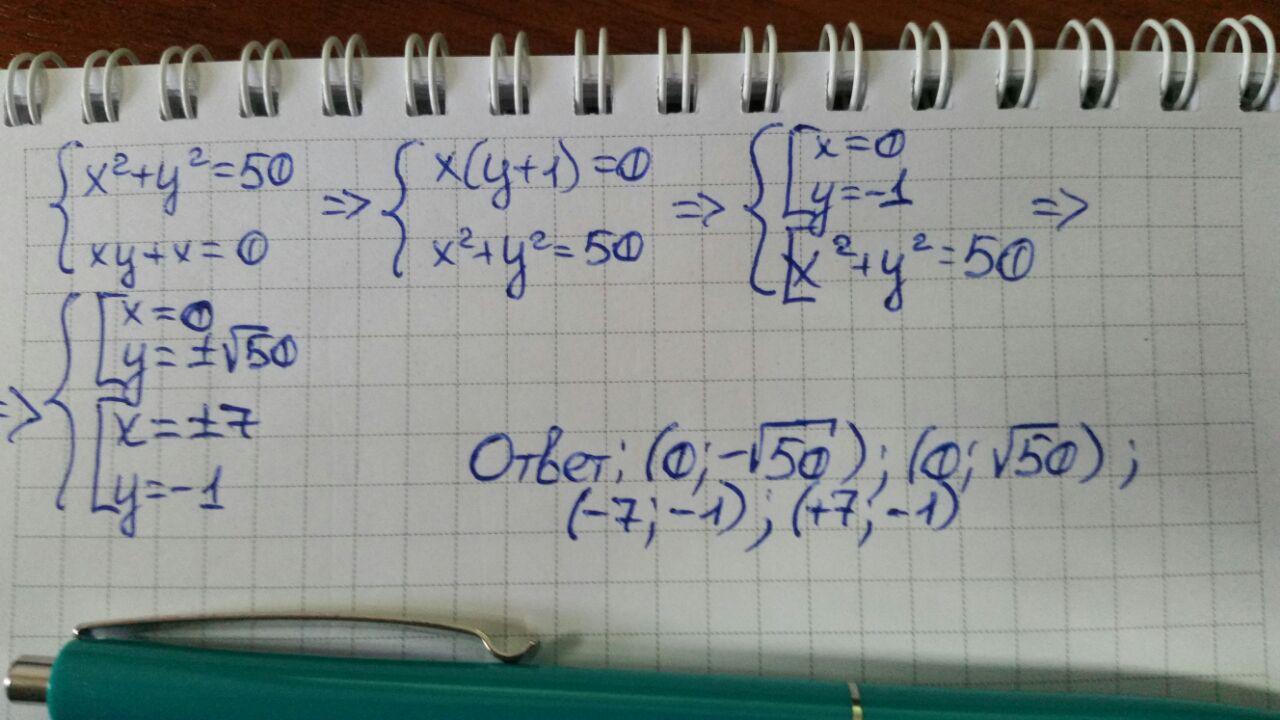 { x²+y²=50 => { x(y+1)=0 => { [ x=0 =>
xy+x=0 x²+y²=50 y=-1
[ x²+y²=50
=> { [ x=0
y=±√50
[ x=±7
y=-1
Ответ: (0;-√50); (0;√50);
(-7;-1); (+7;-1)